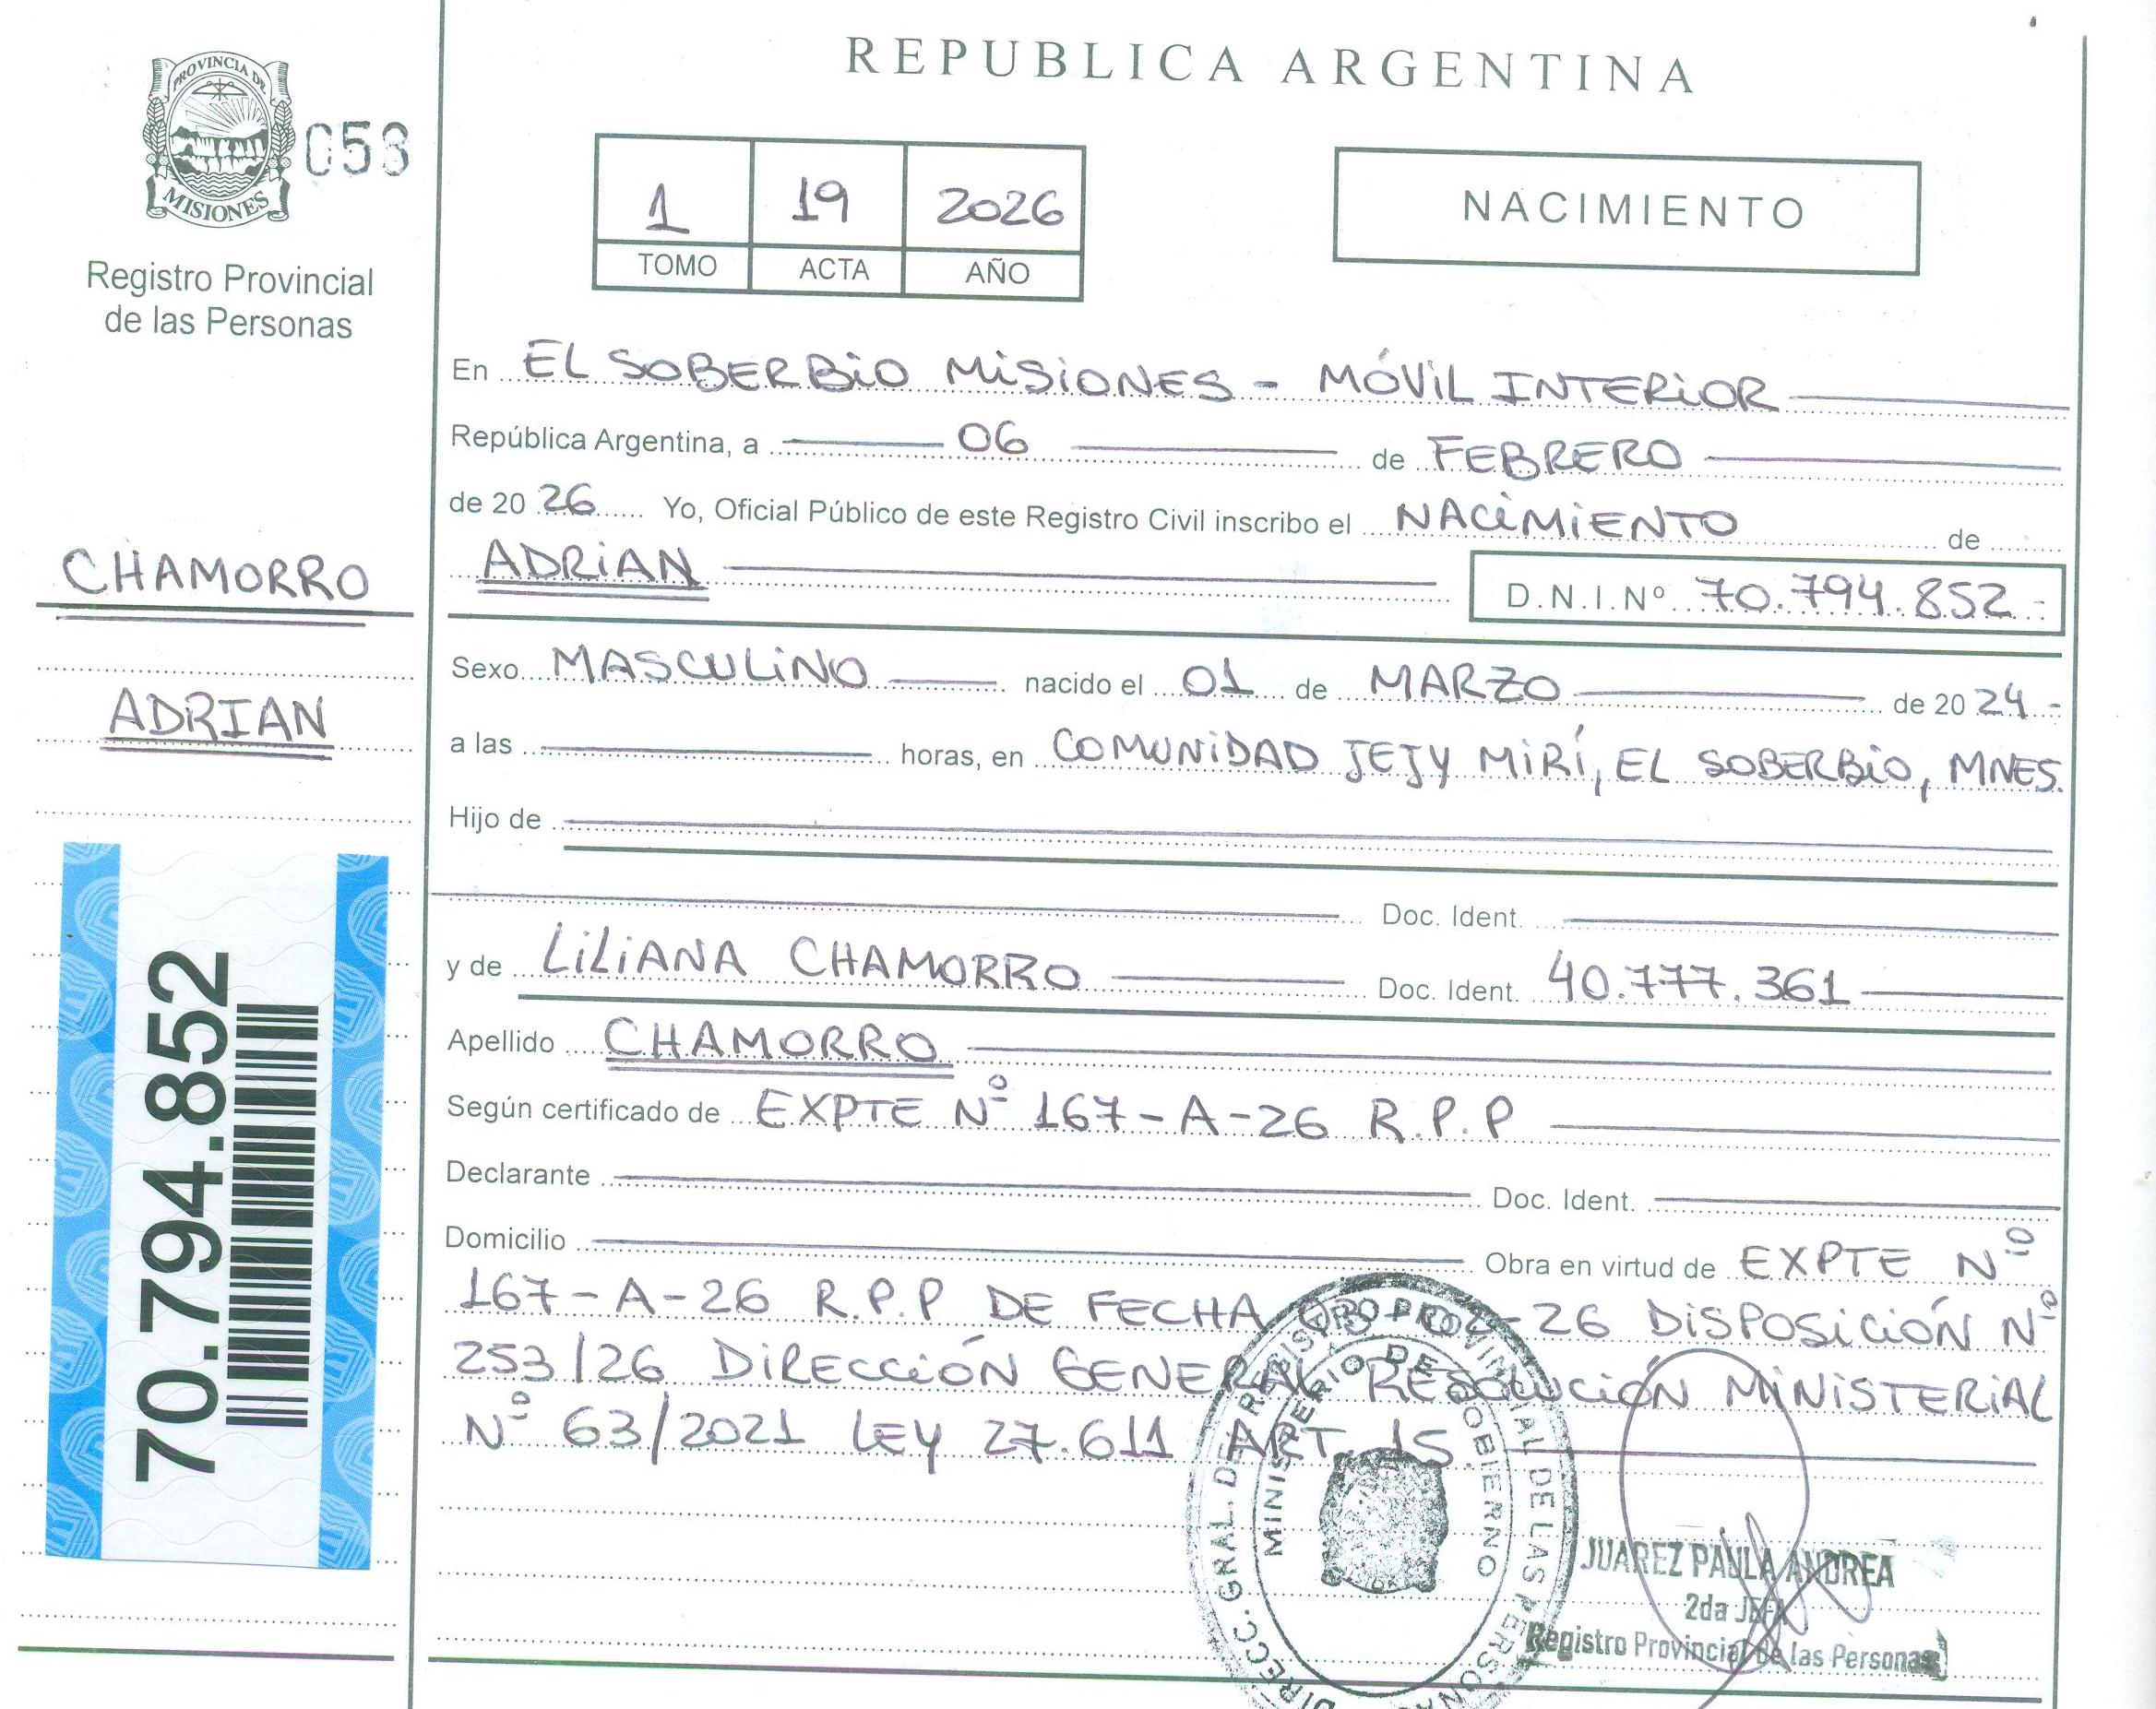 PROVINCIA DE
MISIONES
053
Registro Provincial
de las Personas
CHAMORRO
ADRIAN
70.794.852
REPUBLICA ARGENTINA
1 19 2026
TOMO ACTA AÑO
NACIMIENTO
En EL SOBERBIO MISIONES - MÓVIL INTERIOR
República Argentina, a 06 de FEBRERO
de 20 26 Yo, Oficial Público de este Registro Civil inscribo el NACIMIENTO de
ADRIAN D.N.I.Nº 70.794.852.-
Sexo MASCULINO nacido el 01 de MARZO de 20 24-
a las horas, en COMUNIDAD JEJY MIRÍ, EL SOBERBIO, MNES.
Hijo de
Doc. Ident.
y de LILIANA CHAMORRO Doc. Ident. 40.777.361
Apellido CHAMORRO
Según certificado de EXPTE Nº 167-A-26 R.P.P
Declarante Doc. Ident.
Domicilio Obra en virtud de EXPTE Nº
167-A-26 R.P.P DE FECHA 26 DISPOSICIÓN Nº
253/26 DIRECCIÓN GENERAL RESOLUCIÓN MINISTERIAL
Nº 63/2021 LEY 27.611 ART. 15.
DIRECC. GRAL. DE REGISTRO PROVINCIAL DE LAS PERSONAS
MINISTERIO DE GOBIERNO
JUAREZ PAULA ANDREA
2da JEFA
Registro Provincial de las Personas